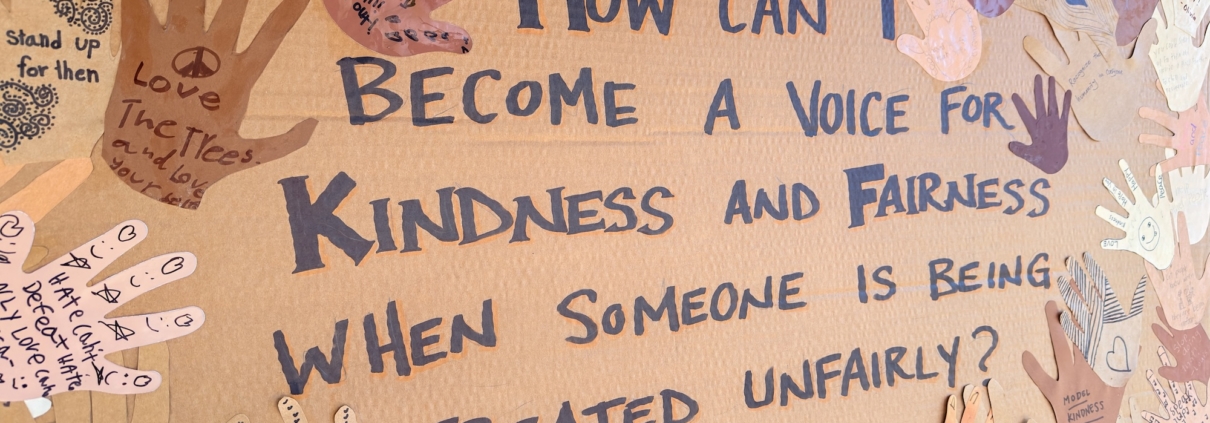 HOW CAN I
BECOME A VOICE FOR
KINDNESS AND FAIRNESS
WHEN SOMEONE IS BEING
TREATED UNFAIRLY?
stand up
for then
Love
The Trees.
and love
your self
HATE can't
Defeat HATE
NLY LOVE can
MODEL
KINDNESS